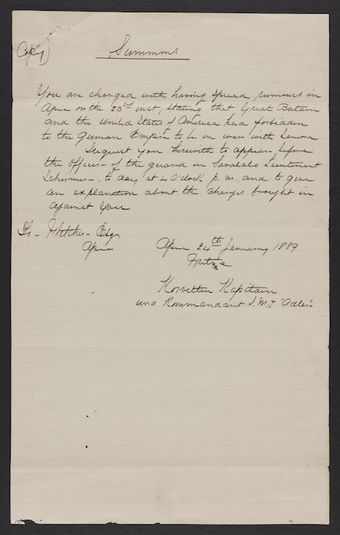 (Copy)
Summons
You are charged with having spread rumours in
Apia on the 23rd inst, stating that Great Britain
and the United States of America had forbidden
to the German Empire to be in war with Samoa
I request you herewith to appear before
the Officer of the guard in Savalalo Lieutenant
to day, at 4 O'clock p. m. and to give
an explanation about the charges brought in
against you
Esqr
Apia
Apia 24th January 1889
Fritze
Korvetten Kapitain
und Kommandant S.M.S "Adler"